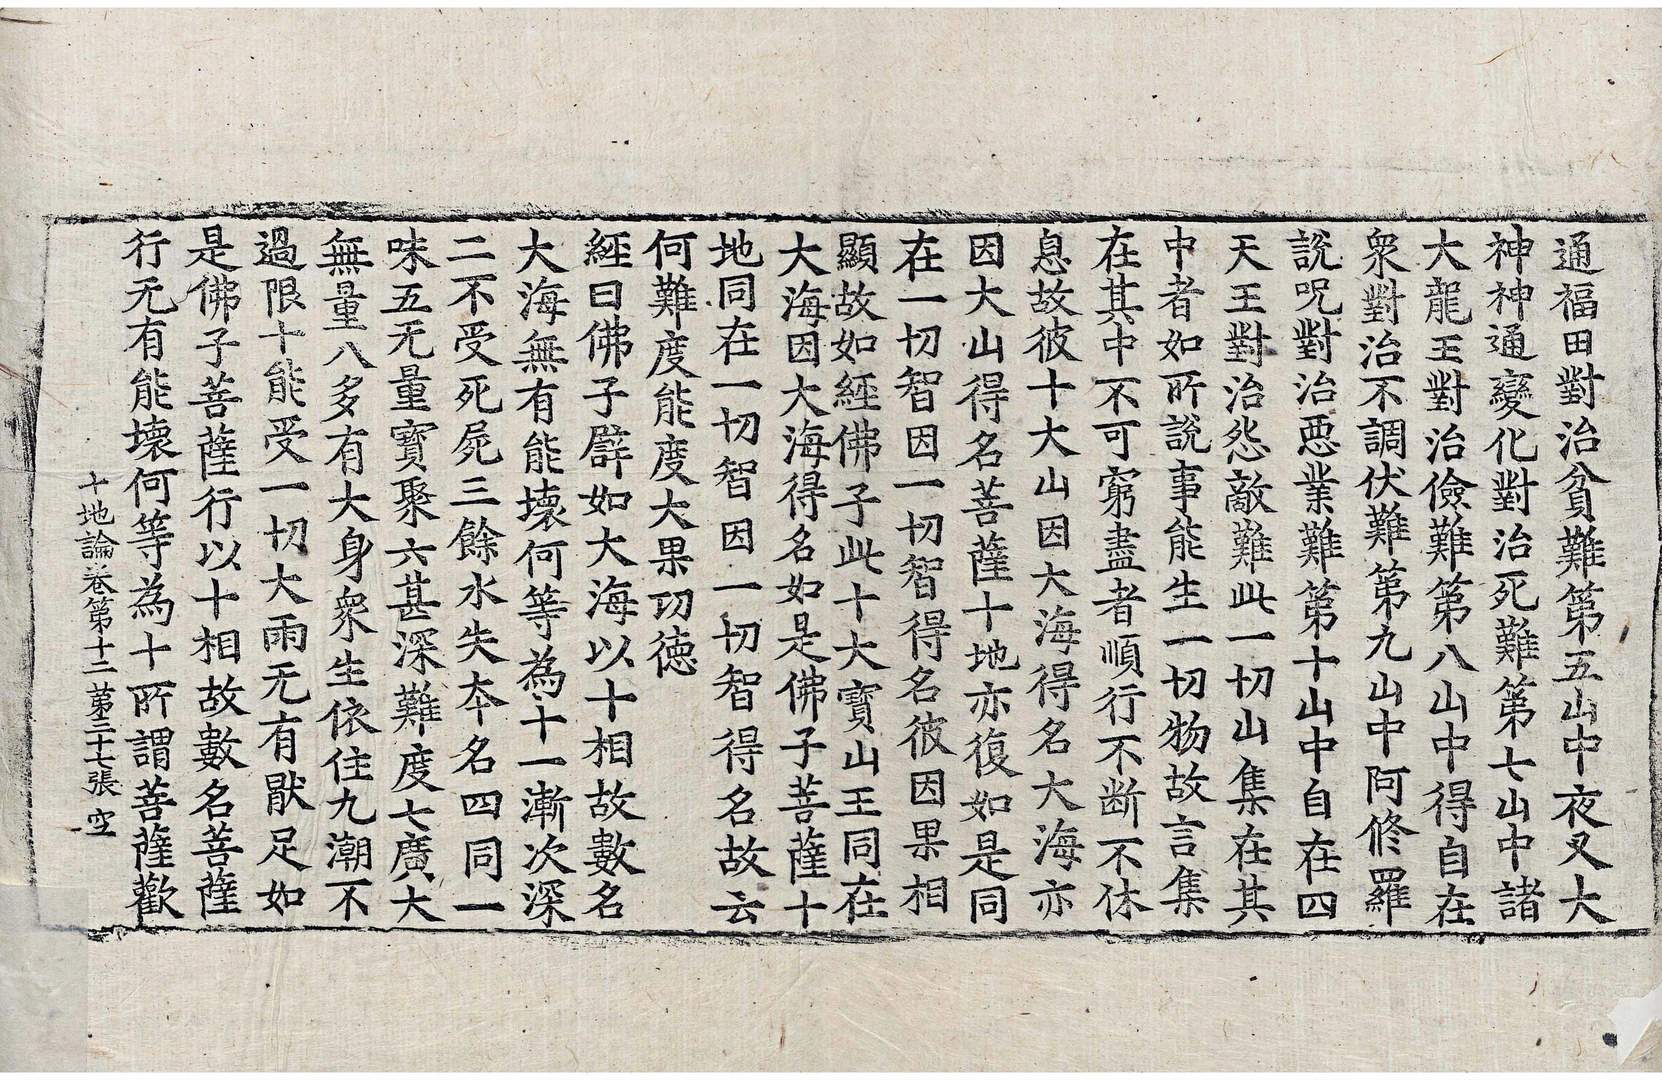 通福田對治貧難第五山中夜叉大
神神通變化對治死難第七山中諸
大龍王對治儉難第八山中得自在
衆對治不調伏難第九山中阿脩羅
說呪對治惡業難第十山中自在四
天王對治怨敵難此一切山集在其
中者如所說事能生一切物故言集
在其中不可窮盡者順行不断不休
息故彼十大山因大海得名大海亦
因大山得名菩薩十地亦復如是同
在一切智因一切智得名彼因果相
顯故如經佛子此十大寶山王同在
大海因大海得名如是佛子菩薩十
地同在一切智因一切智得名故云
何難度能度大果功德
經曰佛子譬如大海以十相故數名
大海無有能壞何等為十一漸次深
二不受死屍三餘水失本名四同一
味五无量寶聚六甚深難度七廣大
無量八多有大身衆生依住九潮不
過限十能受一切大雨无有猒足如
是佛子菩薩行以十相故數名菩薩
行无有能壞何等為十所謂菩薩歡
十地論卷第十二 第三十七張 空